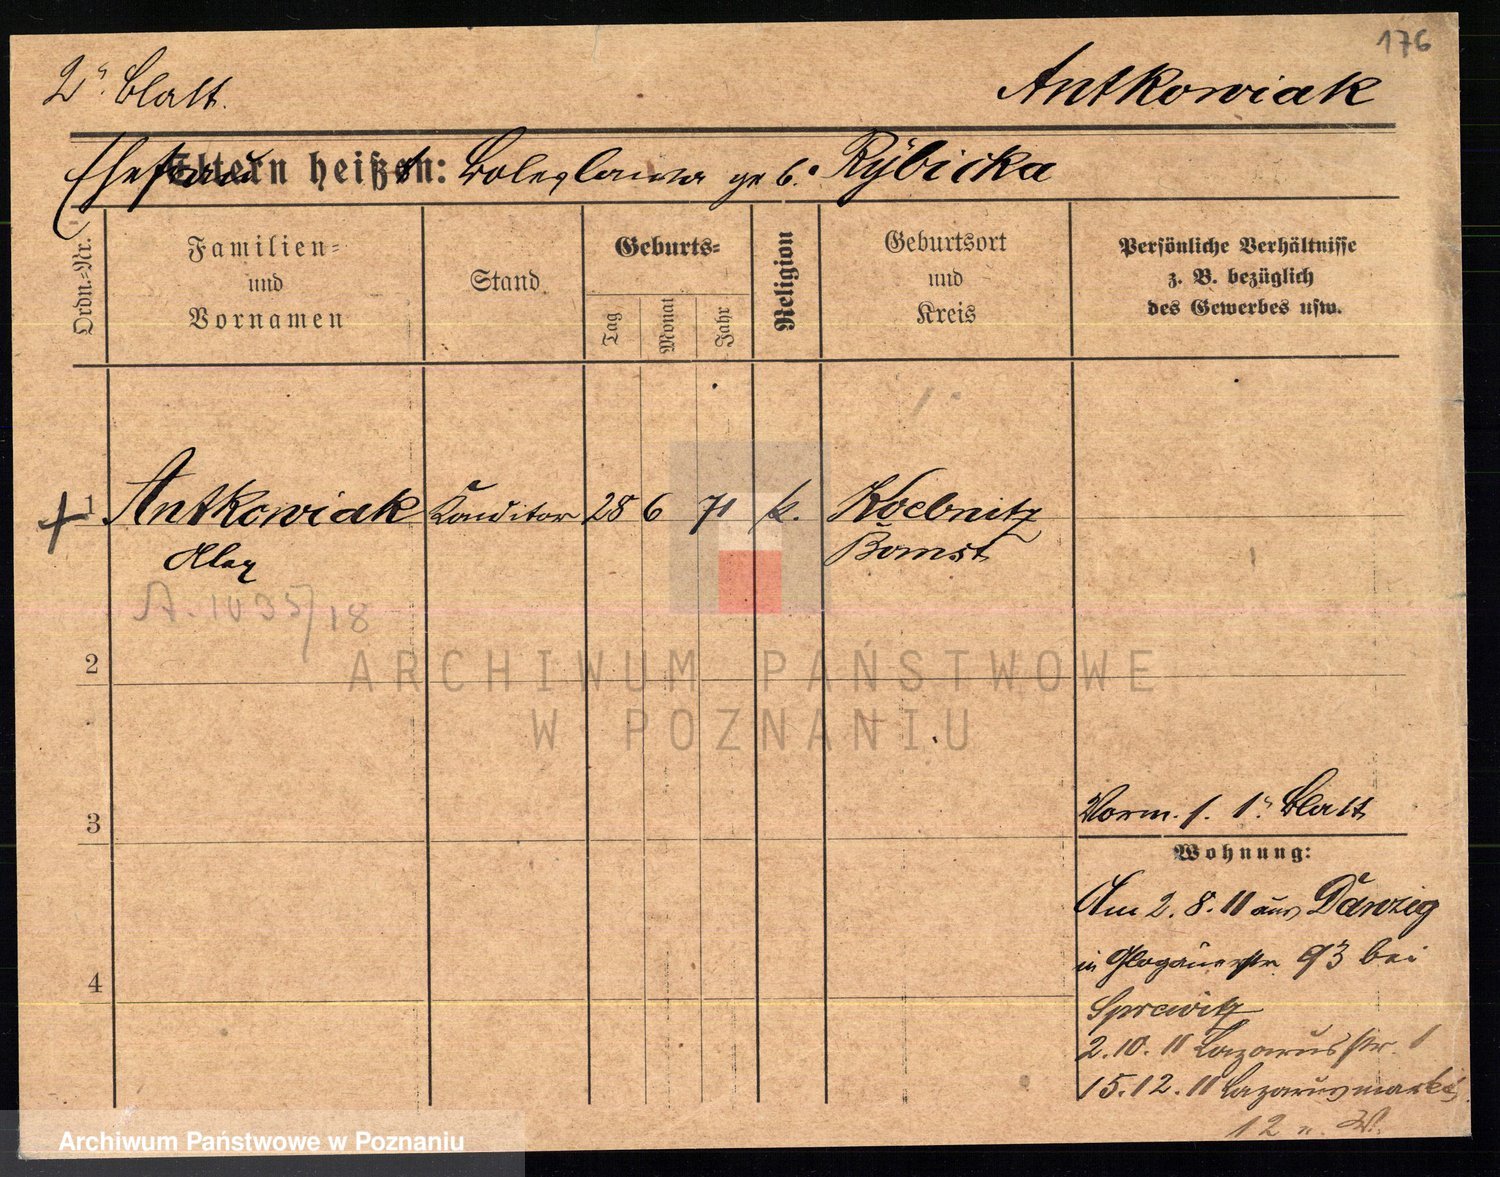 176
2ˢ Blatt.
Antkowiak
Eltern heißen:
Ehefrau Boleslawa geb. Rÿbicka
Ordn.=Nr.
Familien=
und
Vornamen
Stand
Geburts=
Tag
Monat
Jahr
Religion
Geburtsort
und
Kreis
Persönliche Verhältnisse
z. B. bezüglich
des Gewerbes usw.
1 Antkowiak Konditor 28 6 71 k. Koebnitz
Alex Bomst
A. 1035/18
2
ARCHIWUM PAŃSTWOWE
W POZNANIU
3
4
Vorm. s. 1ˢ Blatt
Wohnung:
Am 2.8.11 aus Danzig
in Glogauerstr. 93 bei
2.10.11 Lazarusstr. 1
15.12.11 Lazarusmarkt
12 n. W.
Archiwum Państwowe w Poznaniu